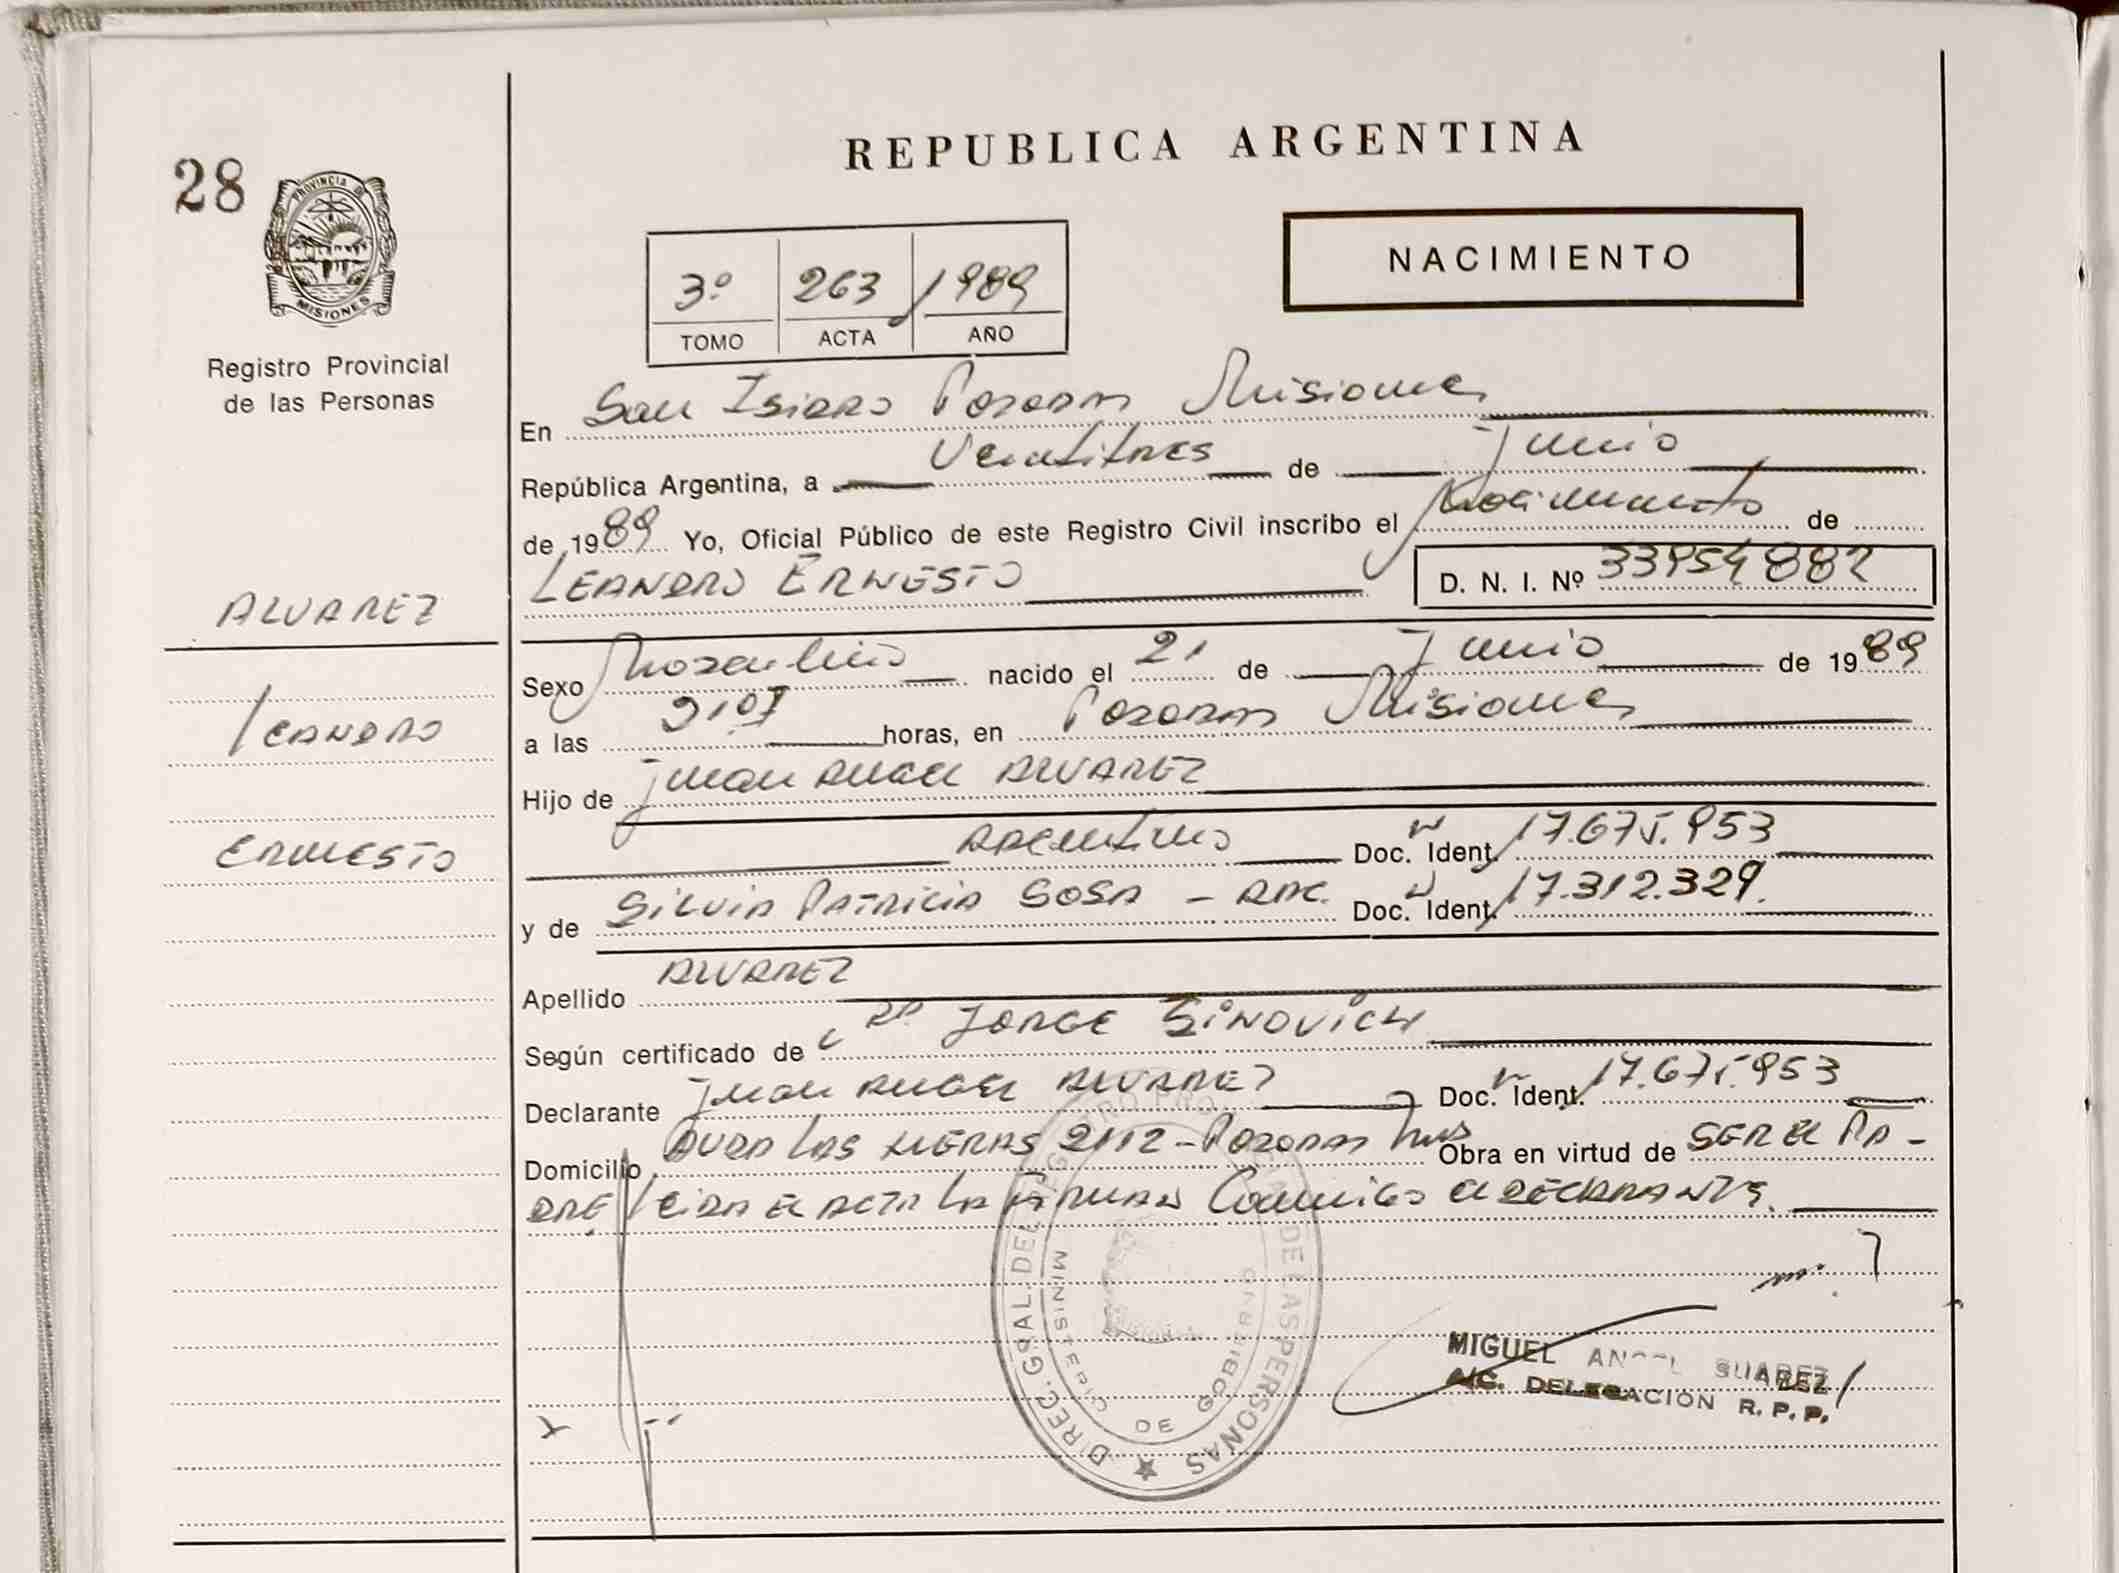 28
PROVINCIA DE
MISIONES
Registro Provincial
de las Personas
ALVAREZ
LEANDRO
ERNESTO
REPUBLICA ARGENTINA
NACIMIENTO
3º 263 1989
TOMO ACTA AÑO
En San Isidro Posadas Misiones
República Argentina, a Veintitres de Junio
de 1989 Yo, Oficial Público de este Registro Civil inscribo el Nacimiento de
LEANDRO ERNESTO D. N. I. Nº 33954882
Sexo Masculino nacido el 21 de Junio de 1989
a las horas, en Posadas Misiones
Hijo de Juan Angel ALVAREZ
Argentino Doc. Ident. 17.675.953
y de SILVIA PATRICIA SOSA - ARG. Doc. Ident. 17.312.329.
Apellido ALVAREZ
Según certificado de JORGE SINOVICH
Declarante Juan Angel ALVAREZ Doc. Ident. 17.675.953
Domicilio AVDA LAS HERAS 2112 - Posadas Mns Obra en virtud de SER EL PA-
DRE LEIDA EL ACTA LA FIRMAN Conmigo el DECLARANTE.
DIREC. GRAL. DEL REGISTRO PROVINCIAL DE LAS PERSONAS
MINISTERIO DE GOBIERNO
MIGUEL ANGEL SUAREZ
A/C. DELEGACION R. P. P.